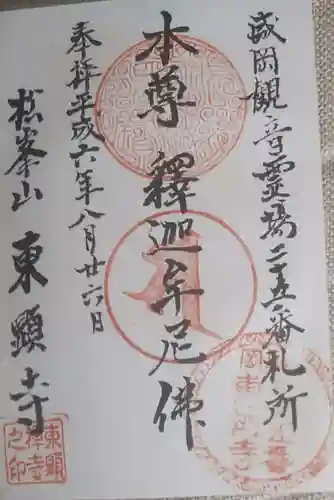 盛岡観音霊場二十五番札所
本尊 釋迦牟尼佛
奉拝平成六年八月廿六日
松峯山 東顯寺
東顯禅寺之印